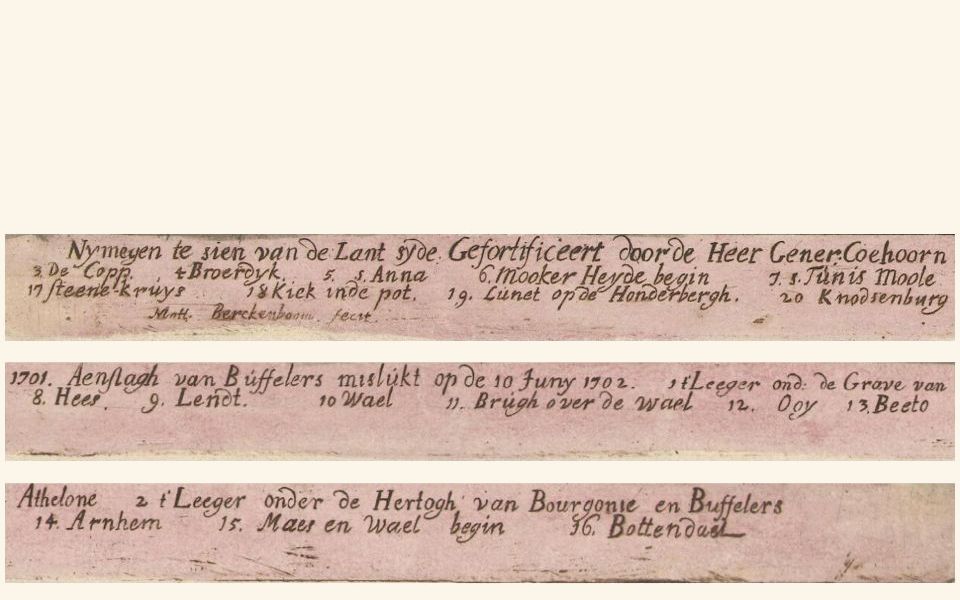 Nymegen te sien van de Lant syde. Gefortificeert door de Heer Gener. Coehoorn
3. De Copp. 4 Broerdyk. 5. s. Anna 6. Mooker Heyde begin 7. s. Túnis Moole
17 steene-krúys 18 Kiek inde pot. 19. Lúnet op de Honderbergh. 20 Knodsenbúrg
Matt. Berckenboom fecit.
1701. Aenslagh van Búffelers mislúkt op de 10 Júny 1702. 1 t'Leeger ond: de Grave van
8. Hees. 9. Lendt. 10 Wael 11. Brúgh over de wael 12. Ooy 13. Beeto
Athelone 2 t'Leeger onder de Hertogh van Bourgonie en Búffelers
14. Arnhem 15. Maes en Wael begin 16. Bottendael